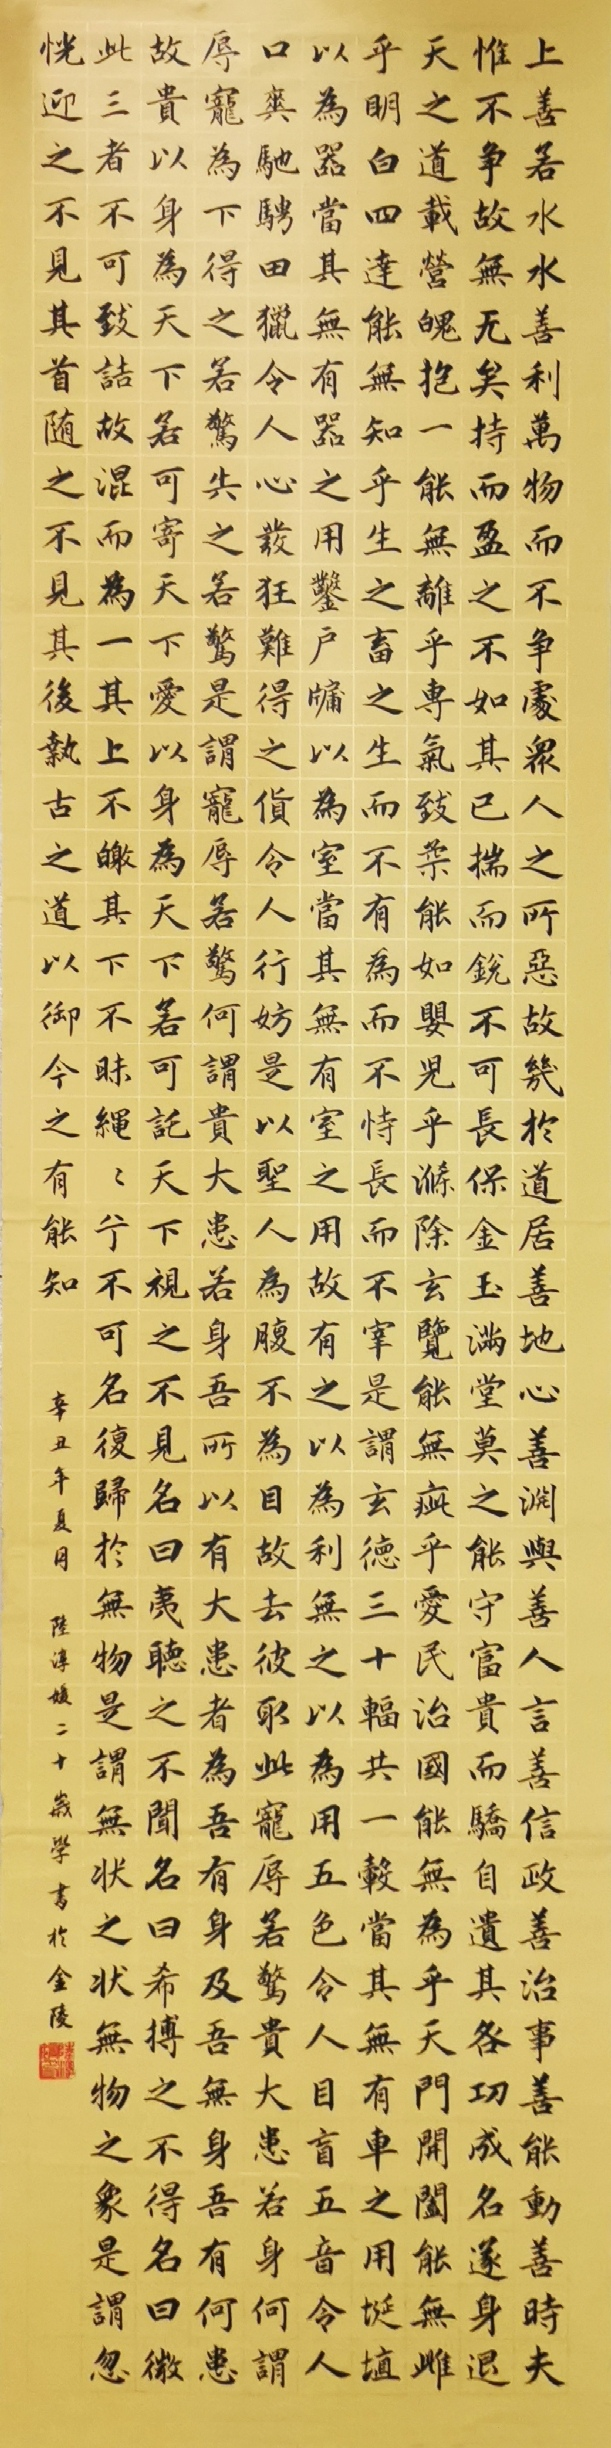 上善若水水善利萬物而不争處衆人之所惡故幾於道居善地心善渊與善人言善信政善治事善能動善時夫
惟不争故無无矣持而盈之不如其已揣而銳不可長保金玉满堂莫之能守富貴而驕自遺其咎功成名遂身退
天之道載營魄抱一能無離乎専氣致柔能如嬰児乎滌除玄覽能無疵乎愛民治國能無為乎天門開闔能無雌
乎明白四達能無知乎生之畜之生而不有為而不恃長而不宰是謂玄德三十輻共一轂當其無有車之用埏埴
以為器當其無有器之用鑿户牖以為室當其無有室之用故有之以為利無之以為用五色令人目盲五音令人
口爽馳騁田獵令人心發狂難得之貨令人行妨是以聖人為腹不為目故去彼取此寵辱若驚貴大患若身何謂
辱寵為下得之若驚失之若驚是謂寵辱若驚何謂貴大患若身吾所以有大患者為吾有身及吾無身吾有何患
故貴以身為天下若可寄天下愛以身為天下若可託天下視之不見名曰夷聽之不聞名曰希搏之不得名曰微
此三者不可致詰故混而為一其上不皦其下不昧繩〻兮不可名復歸於無物是謂無状之状無物之象是謂忽
恍迎之不見其首随之不見其後執古之道以御今之有能知
辛丑年夏月 陸淳媛二十歲學書於金陵